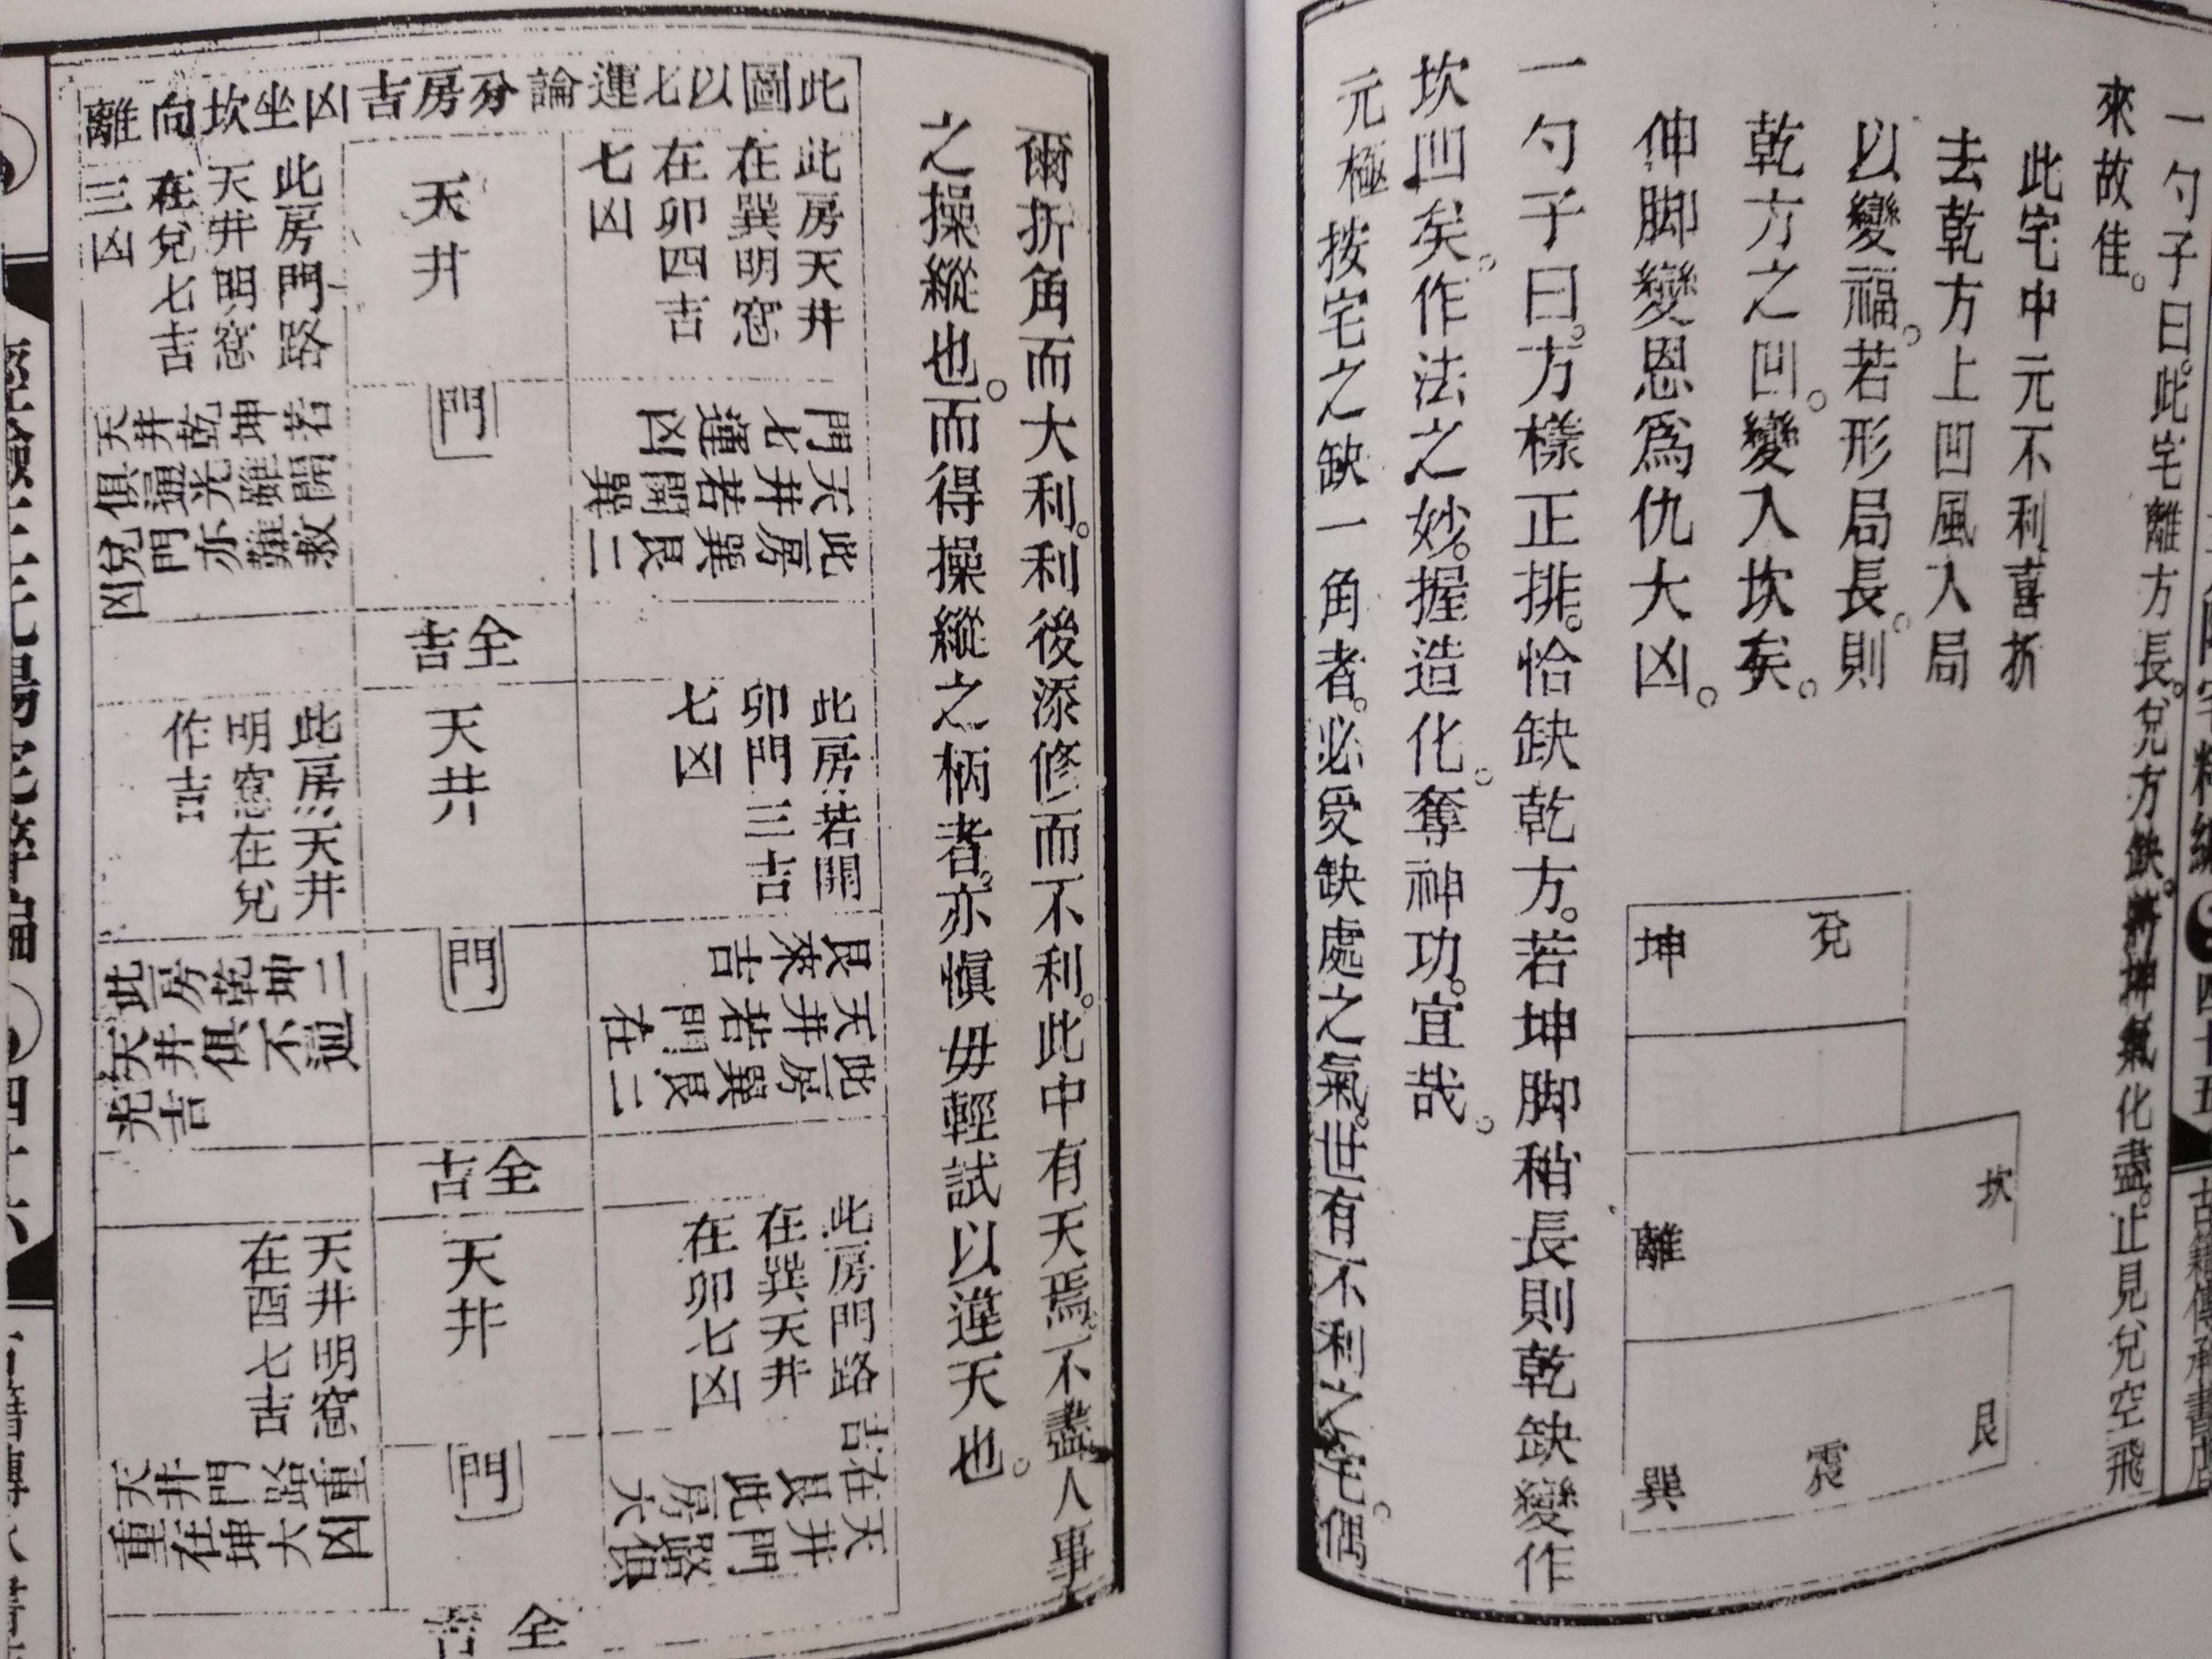 一勺子曰。此宅離方長。兌方缺。將坤氣化盡。止見兌空飛
來故佳。
此宅中元不利喜折
去乾方上凹風入局
以變福。若形局長。則
乾方之凹。變入坎矣。
伸脚變恩爲仇大凶。
兌
坤
坎
離
艮
震
巽
一勺子曰。方樣正排。恰缺乾方。若坤脚稍長則乾缺變作
坎凹矣。作法之妙。握造化。奪神功。宜哉。
元極
按宅之缺一角者。必受缺處之氣。世有不利之宅。偶
爾折角而大利。利後添修而不利。此中有天焉。不盡人事
之操縱也。而得操縱之柄者。亦慎毋輕試以違天也。
此圖以七運論分房吉凶坐坎向離
此房天井
在巽明窓
在卯四吉
七凶
天井
此房門路
天井明窓
在兌七吉
三凶
此房艮二
天井巽
門若開巽
七運凶
門
若開
坤雖
乾光亦
井通門
天俱兌凶
全吉
此房若開
卯門三吉
七凶
天井
此房天井
明窓在兌
作吉
此房艮二
天井巽
若門在
艮來吉
門
二
坤不
乾俱
此房井吉
天光
全吉
此房門路
在巽天井
在卯七凶
天井
天井明窓
在酉七吉
天井
在艮
吉
此房門路
門
天井門路重
重在坤大凶
全吉
四十五
古籍傳承書店